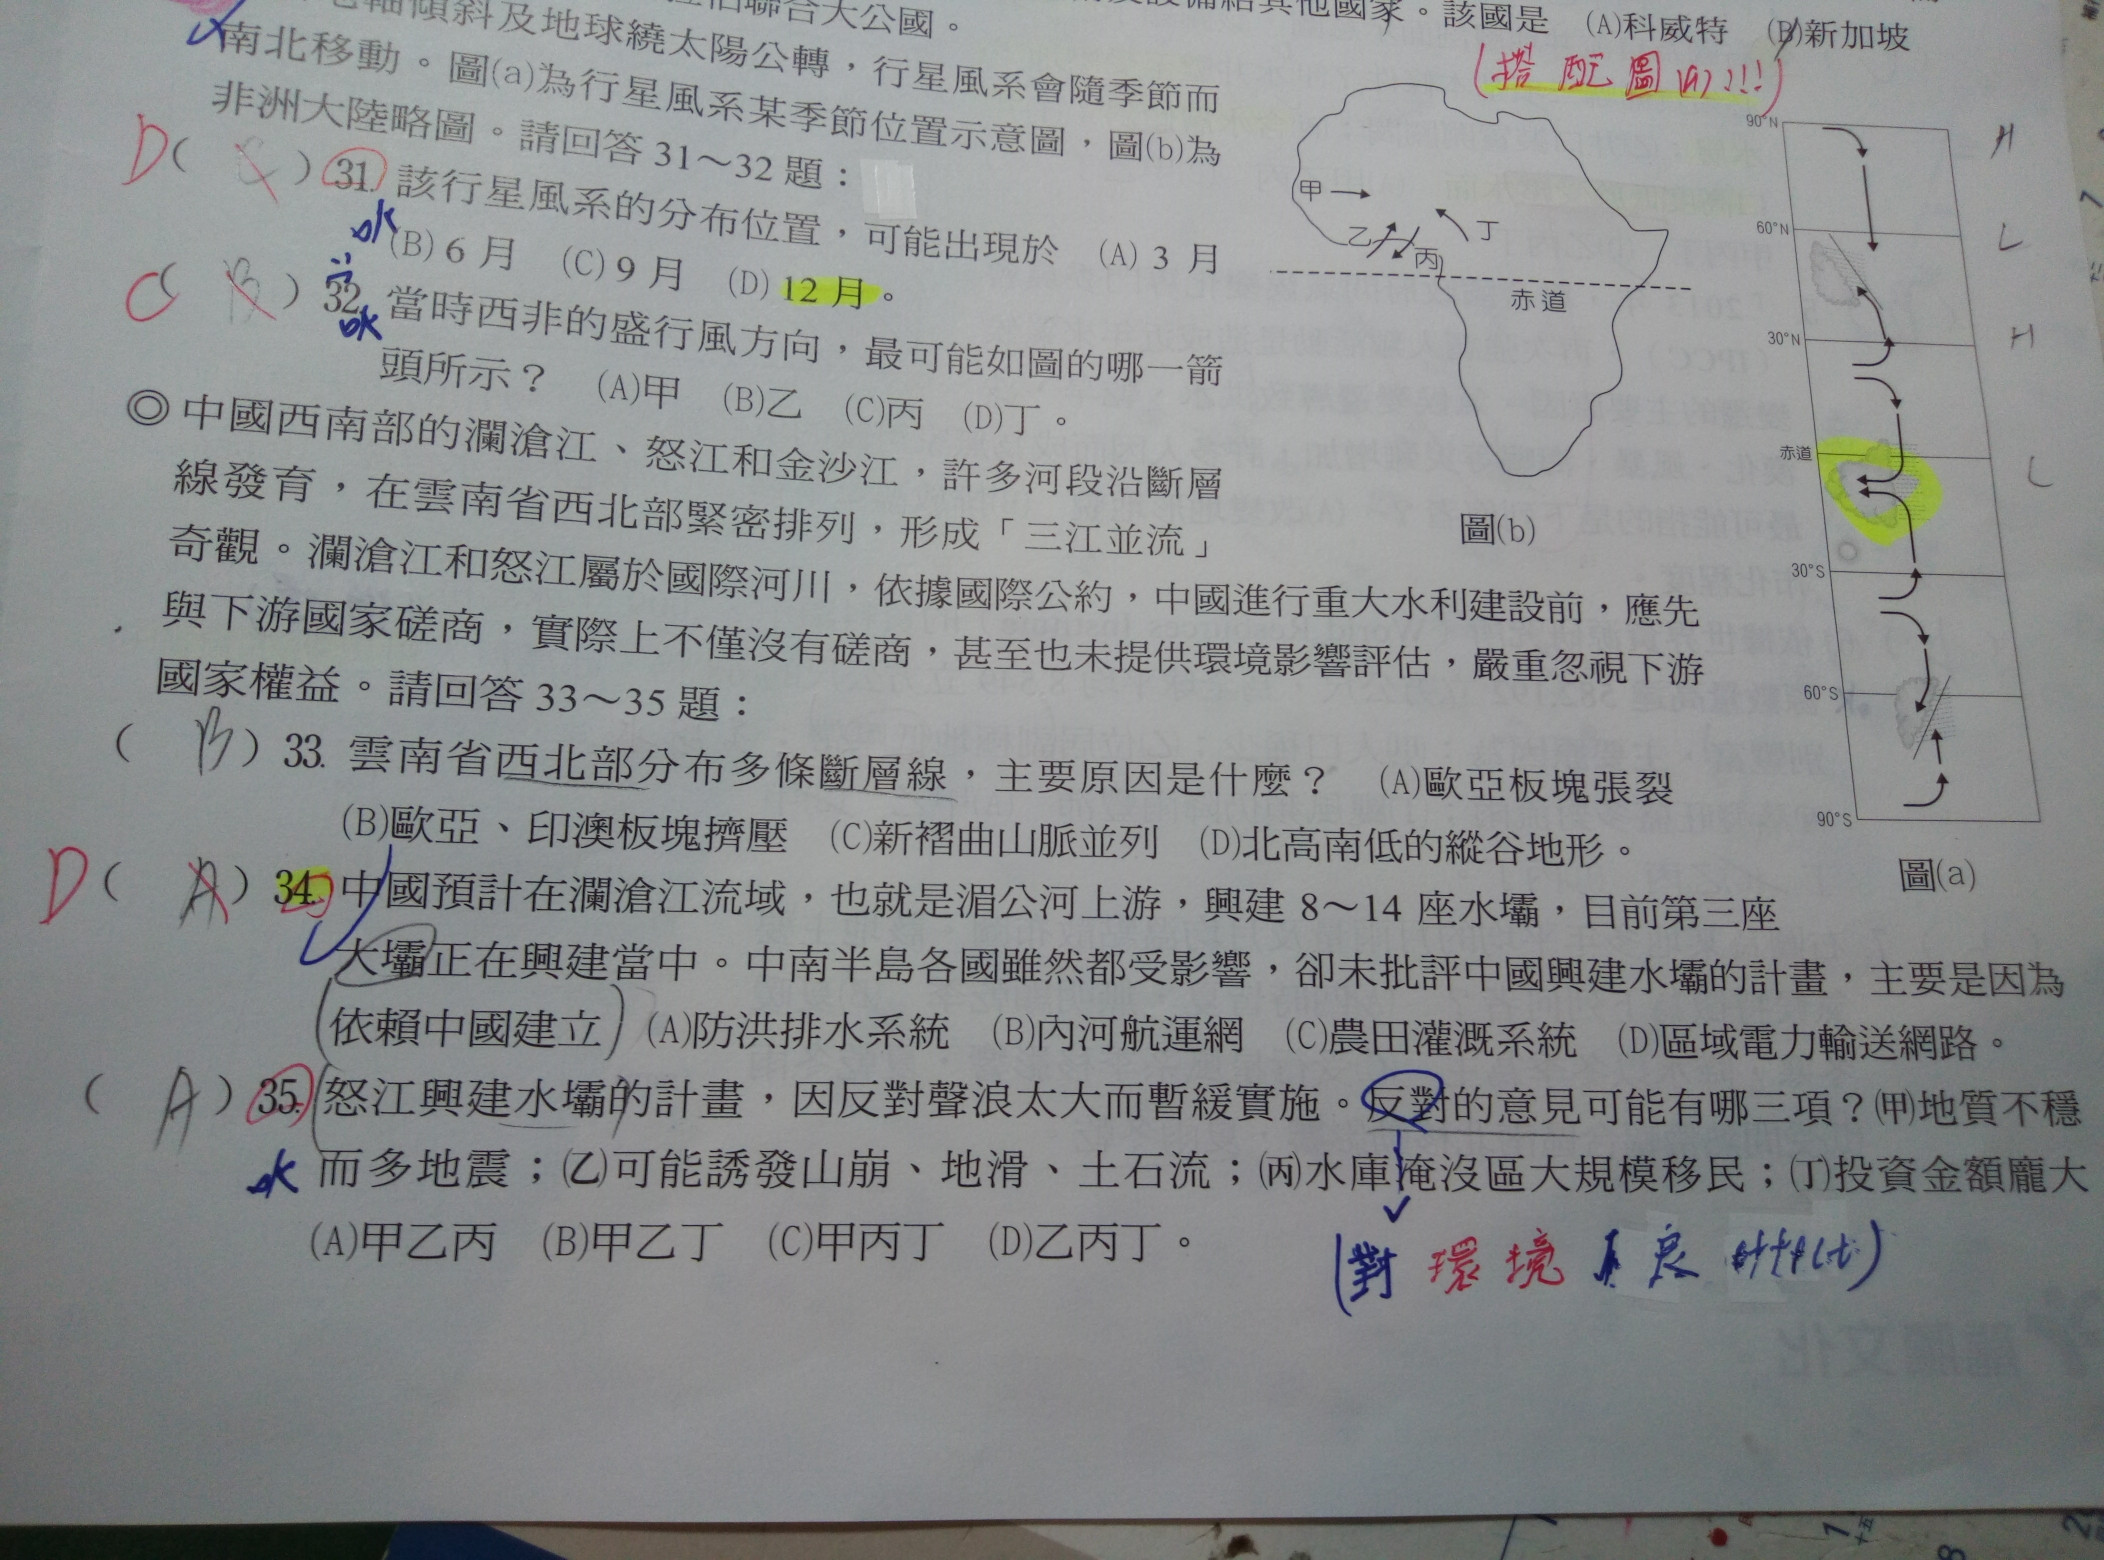 聯合大公國。
設備給其他國家。該國是 (A)科威特 (B)新加坡
軸傾斜及地球繞太陽公轉，行星風系會隨季節而
南北移動。圖(a)為行星風系某季節位置示意圖，圖(b)為
非洲大陸略圖。請回答 31～32 題：
D( C )31. 該行星風系的分布位置，可能出現於 (A) 3 月
(B) 6 月 (C) 9 月 (D) 12 月。
C( B )32. 當時西非的盛行風方向，最可能如圖的哪一箭
頭所示？ (A)甲 (B)乙 (C)丙 (D)丁。
◎中國西南部的瀾滄江、怒江和金沙江，許多河段沿斷層
線發育，在雲南省西北部緊密排列，形成「三江並流」
奇觀。瀾滄江和怒江屬於國際河川，依據國際公約，中國進行重大水利建設前，應先
與下游國家磋商，實際上不僅沒有磋商，甚至也未提供環境影響評估，嚴重忽視下游
國家權益。請回答 33～35 題：
( B )33. 雲南省西北部分布多條斷層線，主要原因是什麼？ (A)歐亞板塊張裂
(B)歐亞、印澳板塊擠壓 (C)新褶曲山脈並列 (D)北高南低的縱谷地形。
D( A )34. 中國預計在瀾滄江流域，也就是湄公河上游，興建 8～14 座水壩，目前第三座
大壩正在興建當中。中南半島各國雖然都受影響，卻未批評中國興建水壩的計畫，主要是因為
依賴中國建立 (A)防洪排水系統 (B)內河航運網 (C)農田灌溉系統 (D)區域電力輸送網路。
( A )35. 怒江興建水壩的計畫，因反對聲浪太大而暫緩實施。反對的意見可能有哪三項？(甲)地質不穩
而多地震；(乙)可能誘發山崩、地滑、土石流；(丙)水庫淹沒區大規模移民；(丁)投資金額龐大
(A)甲乙丙 (B)甲乙丁 (C)甲丙丁 (D)乙丙丁。
(對環境 良
(搭配圖(a)!!!)
甲
乙
丙
丁
赤道
圖(b)
90°N
H
60°N
L
30°N
H
赤道
L
30°S
60°S
90°S
圖(a)